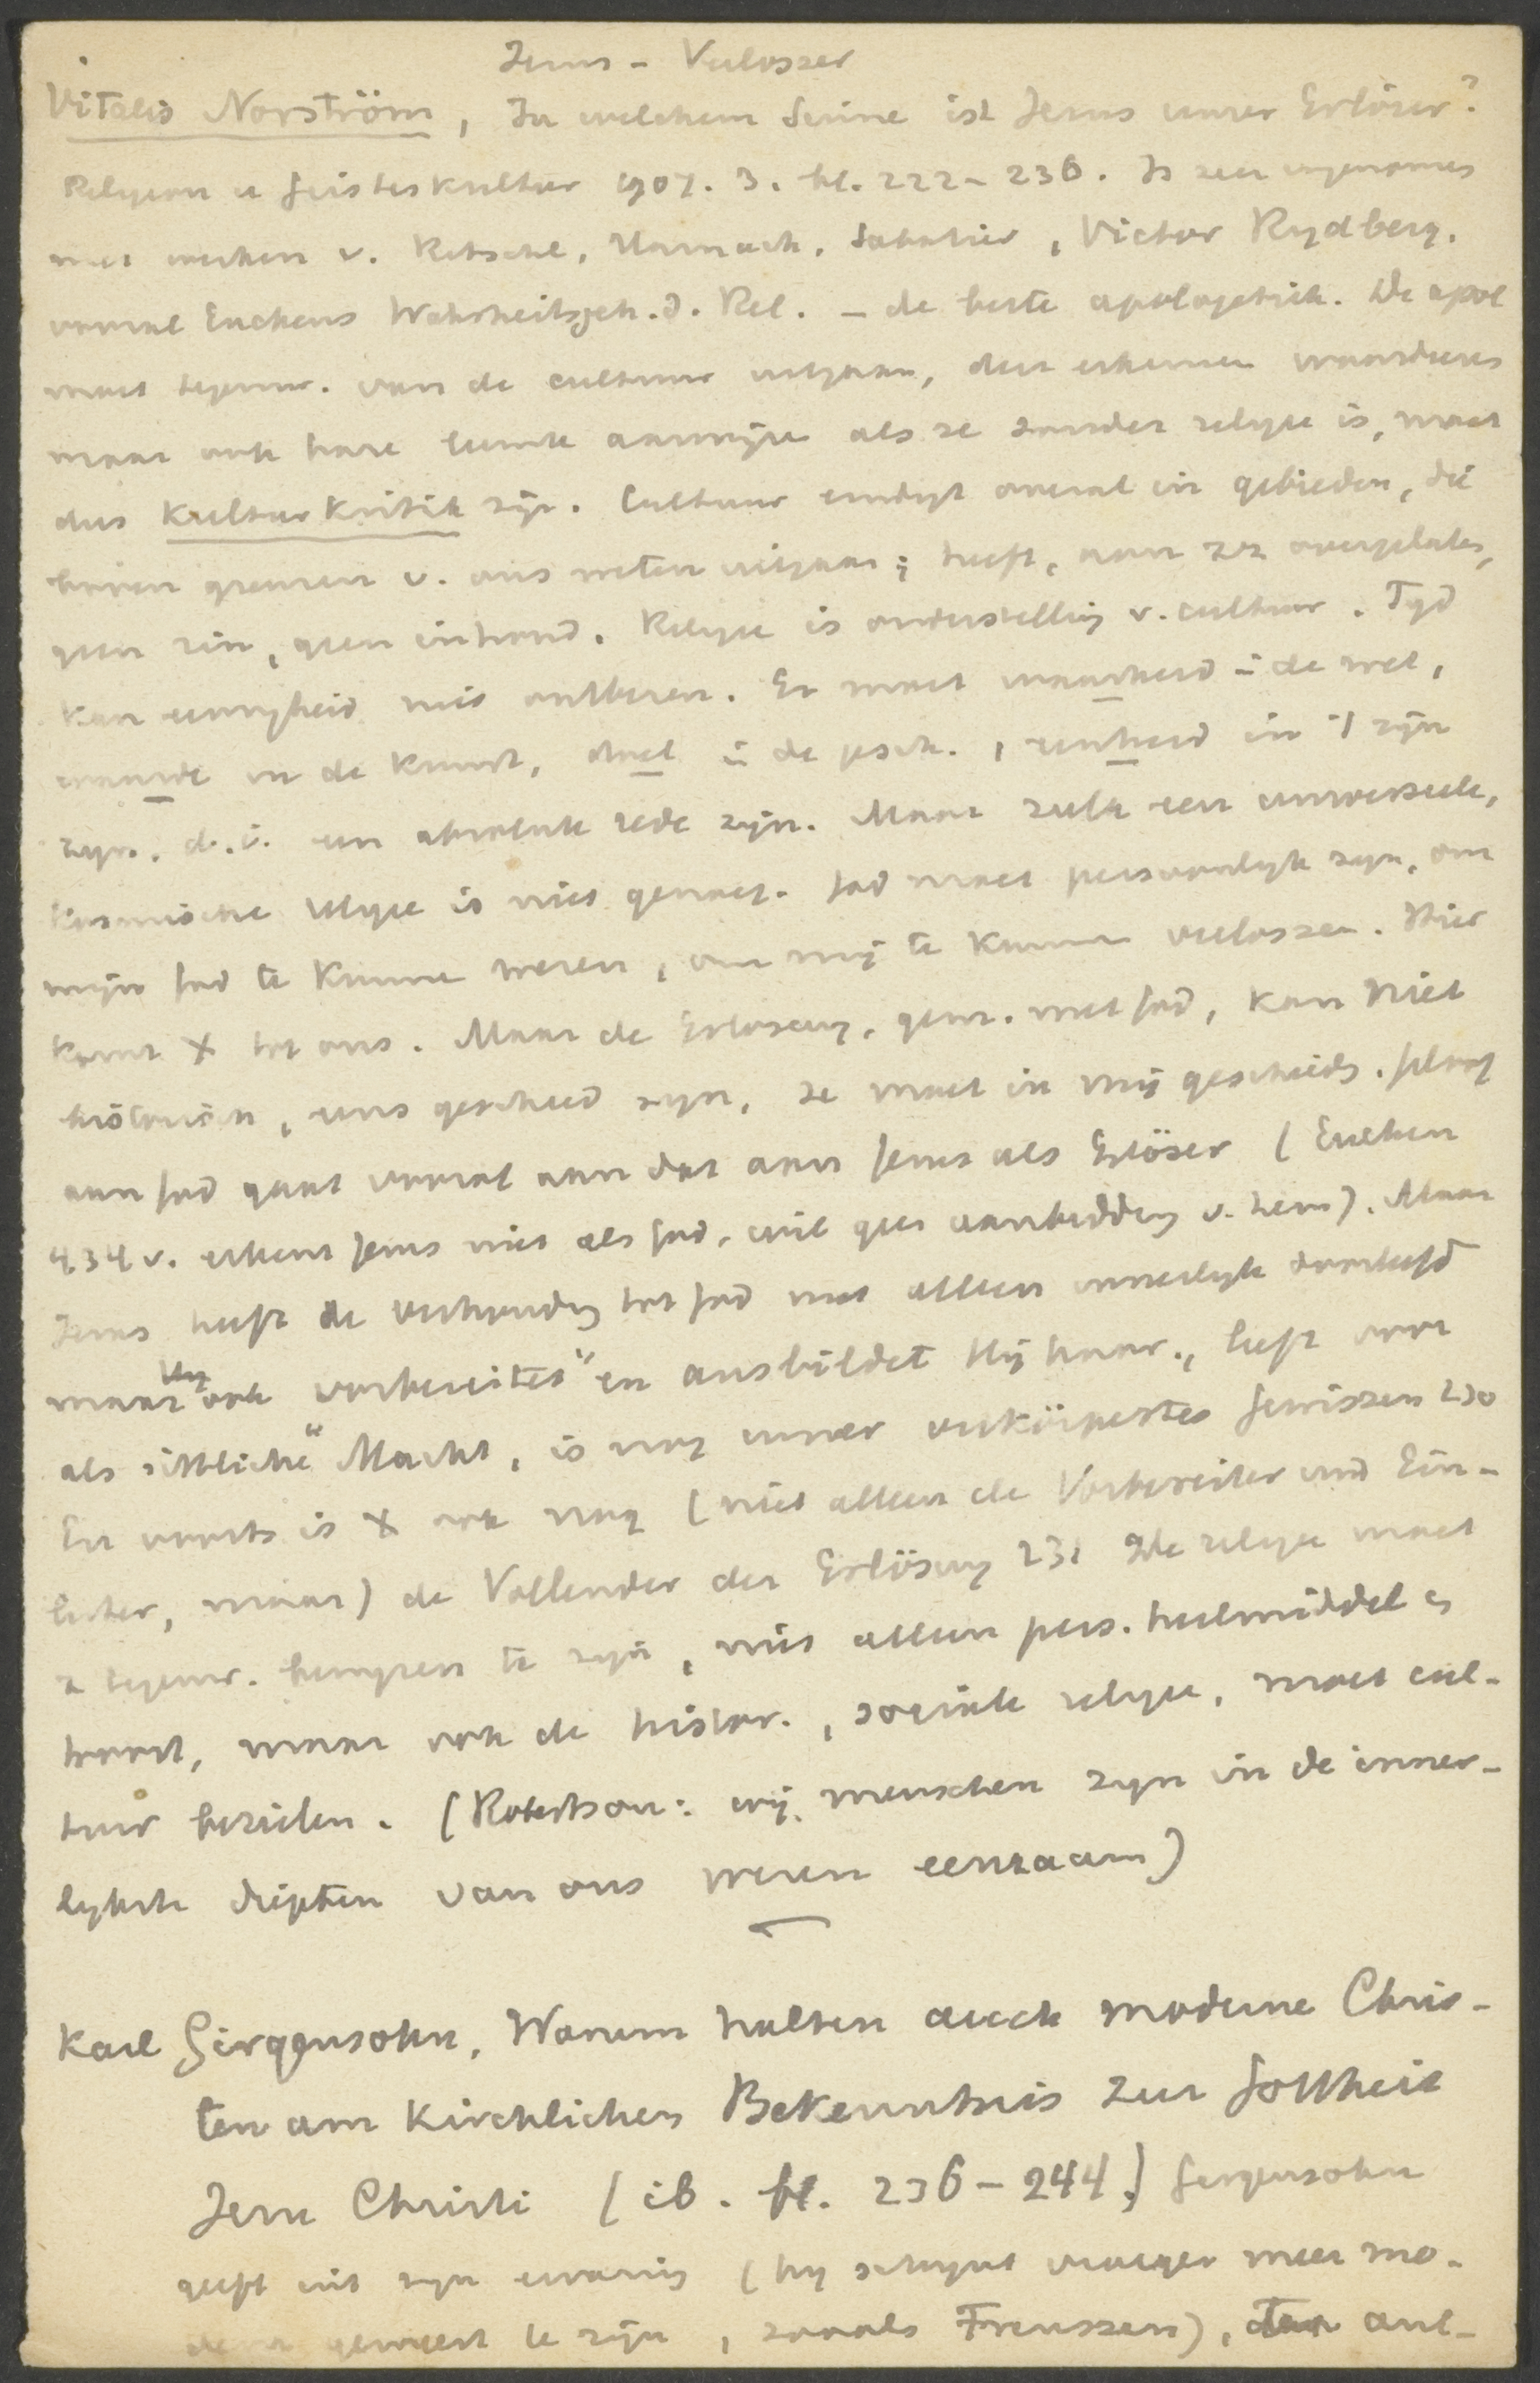 Jezus - Verlosser
Vitalis Norström, In welchem Sinne ist Jesus unser Erlöser?
Religion u Geisteskultur 1907. 3. bl. 222-236. Is zeer ingenomen
met werken v. Ritschl, Harnack, Sabatier, Victor Rydberg,
vooral Euckens Wahrheitsgeh. d. Rel. - de beste apologetiek. De apol
moet tegenw. van de cultuur uitgaan, deze erkennen waardeeren
maar ook hare leemte aanwijzen als ze zonder religie is, moet
dus Kulturkritik zijn. Cultuur eindigt overal in gebieden, die
boven grenzen v. ons weten uitgaan; heeft, aan zich overgelaten,
geen zin, geen inhoud. Religie is onderstelling v. cultuur. Tijd
kan eeuwigheid niet ontberen. Er moet waarheid in de wet,
waarde in de kunst, doel in de gesch., eenheid in 't zijn
zijn. d.i. een absolute rede zijn. Maar zulk een universeele,
kosmische religie is niet genoeg. God moet persoonlijk zijn, om
mijn God te kunnen wezen, om mij te kunnen verlossen. Hier
komt X tot ons. Maar de Erlösung, gem. met God, kan niet
historisch, eens geschied zijn, ze moet in mij geschieden. Geloof
aan God gaat vooraf aan dat aan Jezus als Erlöser (Eucken
434 v. erkent Jezus niet als God, wil geen aanbidding v. hem). Maar
Jezus heeft de verhouding tot God niet alleen innerlijk doorleefd
maar Hij ook "vorbereitet" en ausbildet Hij haar, leeft voort
als "sittliche" Macht, is nog unser verkörpertes Gewissen 230
En voorts is X ook nog (niet alleen de Vorbereiter und Ein-
leiter, maar) de Vollender der Erlösung 231 De religie moet
tegenw. te zijn, niet alleen pers. heilmiddel en
troost, maar ook de histor., sociale religie, moet cul-
tuur bezielen. (Robertson: wij menschen zijn in de inner-
lijkste diepten van ons wezen eenzaam)
Karl Girgensohn, Warum halten auch moderne Chris-
ten am kirchlichen Bekenntnis zur Gottheit
Jesu Christi (ib. bl. 236-244.) Girgensohn
geeft uit zijn ervaring (hij schijnt vroeger meer mo-
dern geweest te zijn, zooals Frenssen), ant-